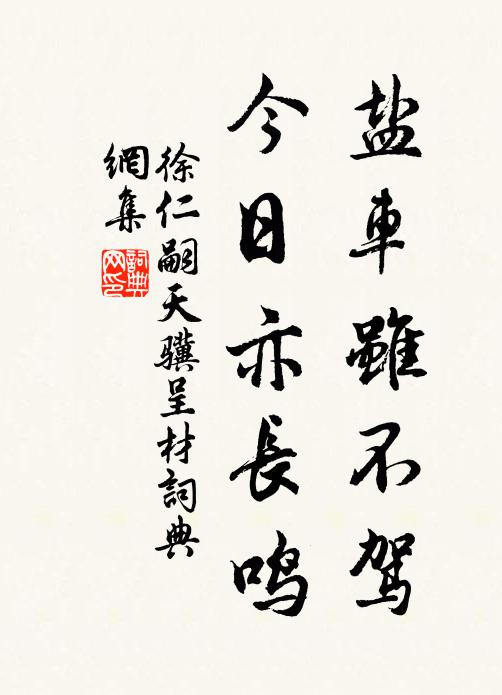 盐車雖不駕
今日亦長鳴
徐仁嗣天驥呈材詞典
網集
詞典
网印